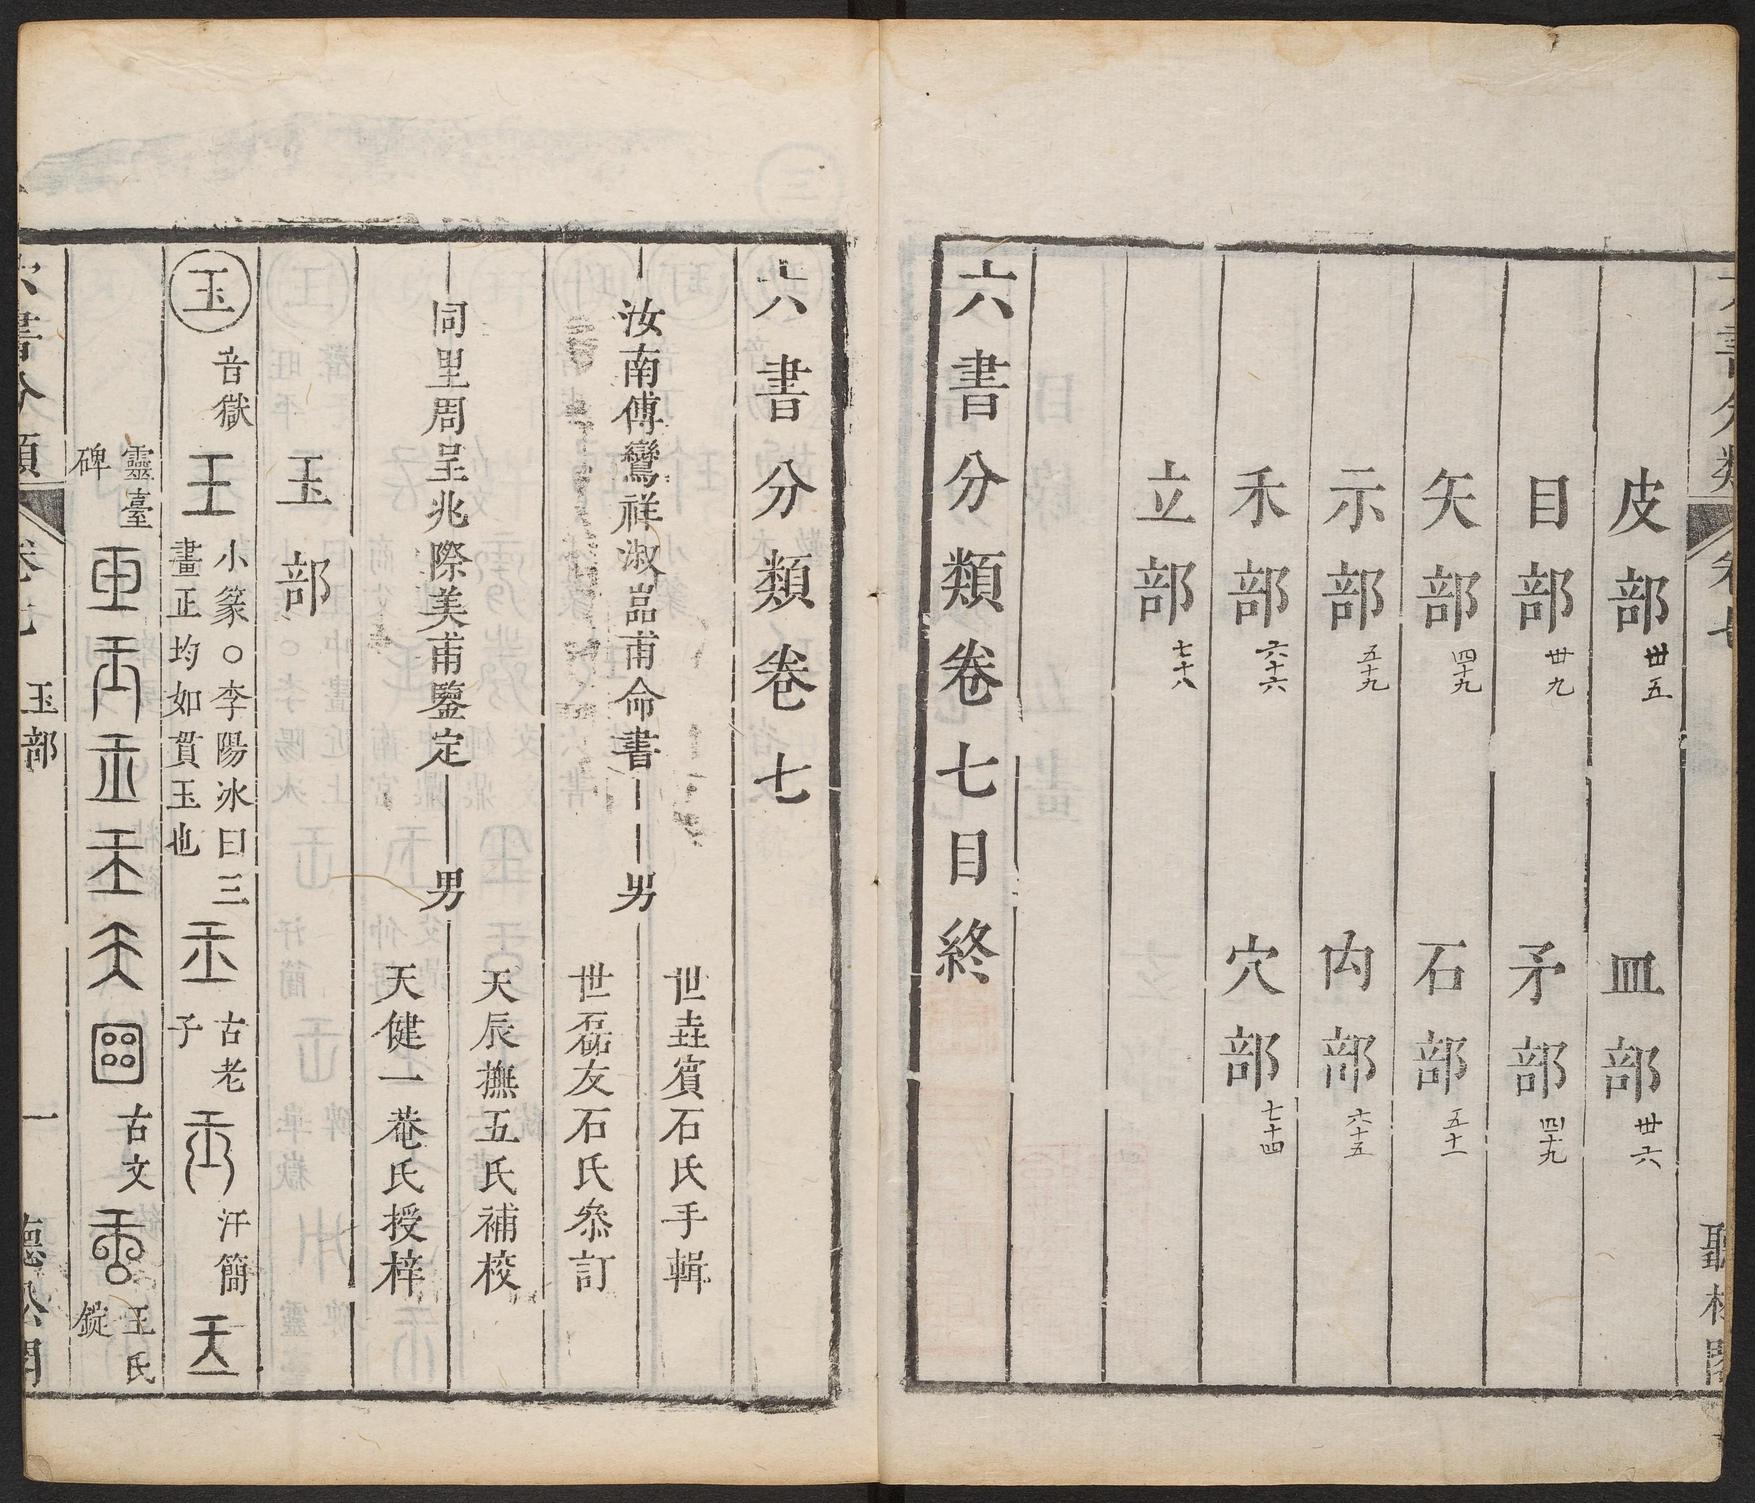 皮部 卅五 皿部 卅六
目部 卅九 矛部 四十九
矢部 四十九 石部 五十一
示部 五十九 禸部 六十五
禾部 六十六 穴部 七十四
立部 七十八
六書分類卷七目終
六書分類卷七
汝南傅鸞祥淑嵓甫命書 男 世垚賓石氏手輯
世磊友石氏叅訂
同里周呈兆際美甫鑒定 男 天辰撫五氏補校
天健一菴氏授梓
玉部
玉 音獄 王 小篆○李陽冰曰三
畫正均如貫玉也 古老
子 汗簡
靈臺
碑 古文 王氏
錠
六書分類 卷七 玉部 一